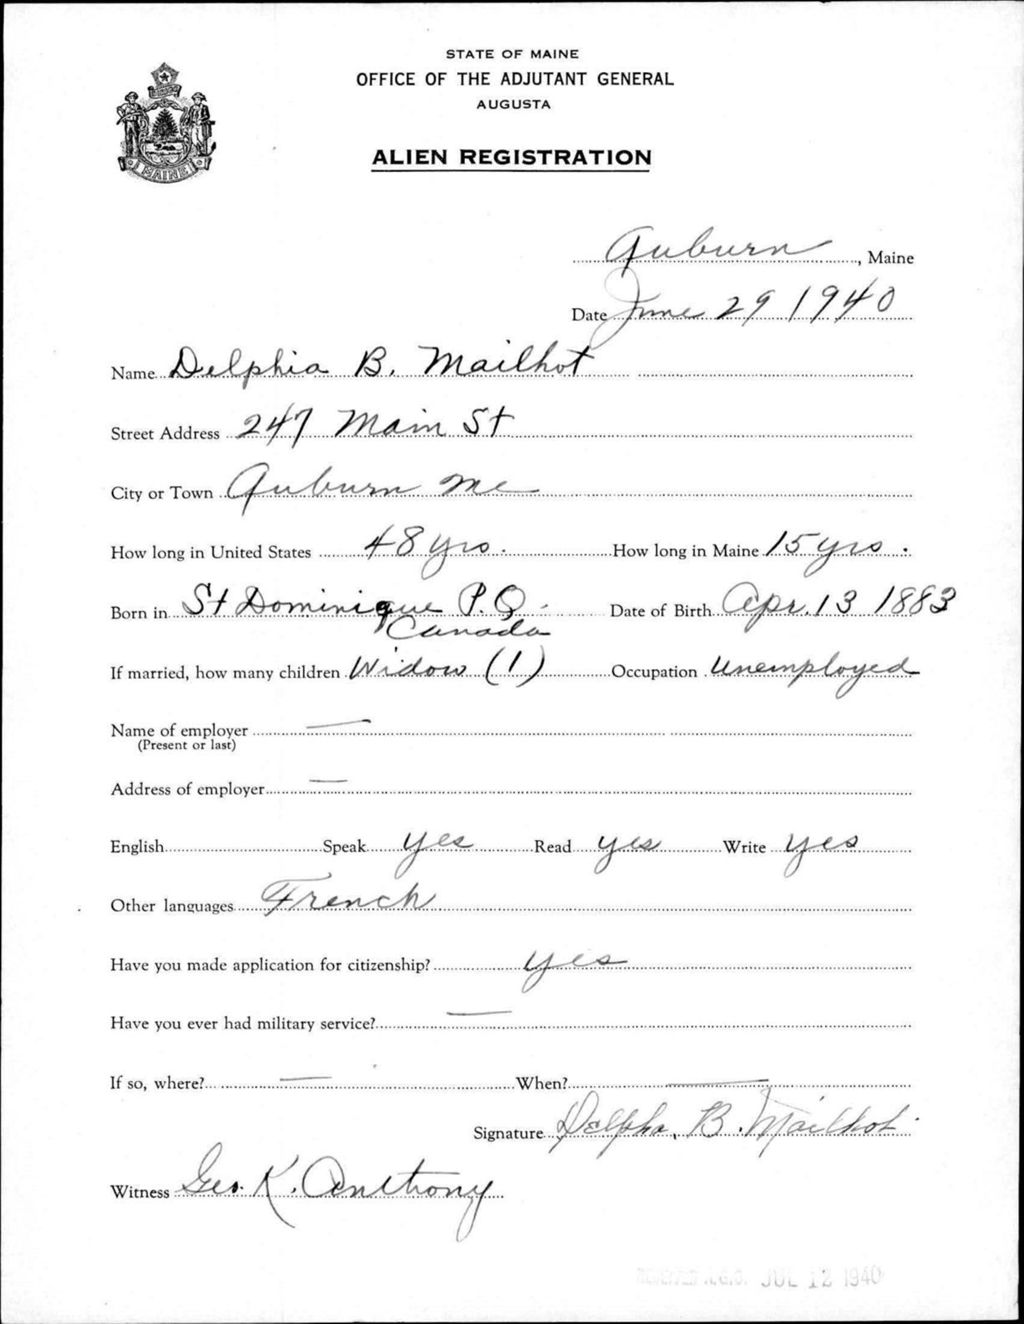 STATE OF MAINE
OFFICE OF THE ADJUTANT GENERAL
AUGUSTA
ALIEN REGISTRATION
MAINE
Auburn, Maine
Date June 29 1940
Name Delphia B. Mailhot
Street Address 247 Main St
City or Town Auburn Me
How long in United States 48 yrs. How long in Maine 15 yrs.
Born in St Dominique P.Q. Date of Birth Apr. 13 1883
Canada
If married, how many children Widow (1) Occupation Unemployed
Name of employer —
(Present or last)
Address of employer —
English Speak yes Read yes Write yes
Other languages French
Have you made application for citizenship? yes
Have you ever had military service? —
If so, where? — When? —
Signature Delpha. B. Mailhot
Witness Geo. K. Anthony
RECEIVED A.G.O. JUL 12 1940